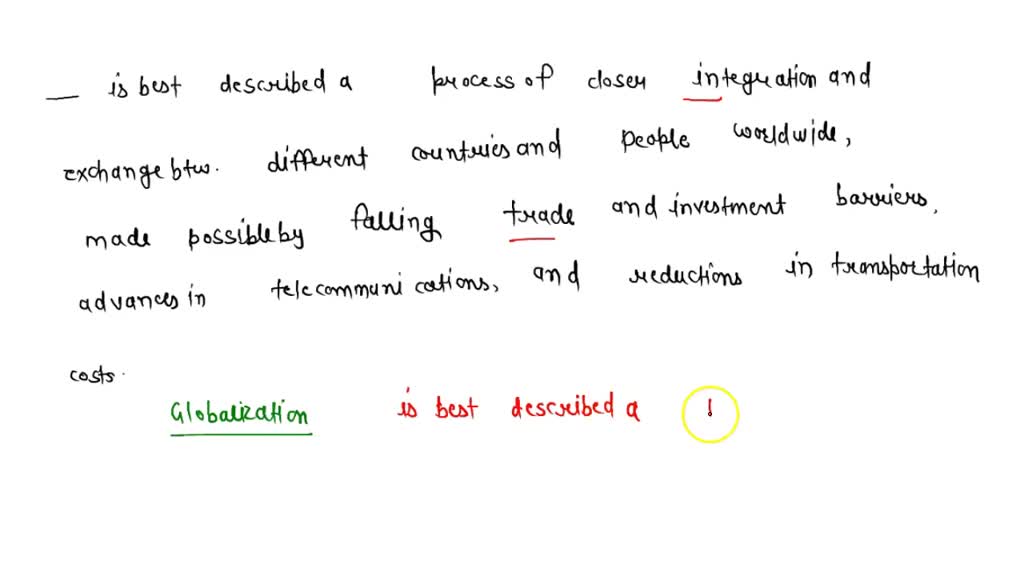 __ is best described a process of closer integration and
exchange btw. different countries and people worldwide,
made possible by falling trade and investment barriers,
advances in telecommunications, and reductions in transportation
costs.
Globalization is best described a